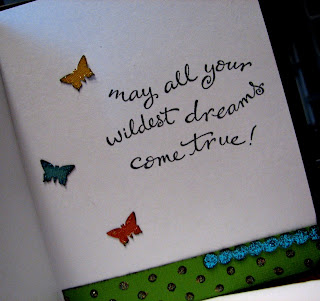 may all your
wildest dreams
come true!